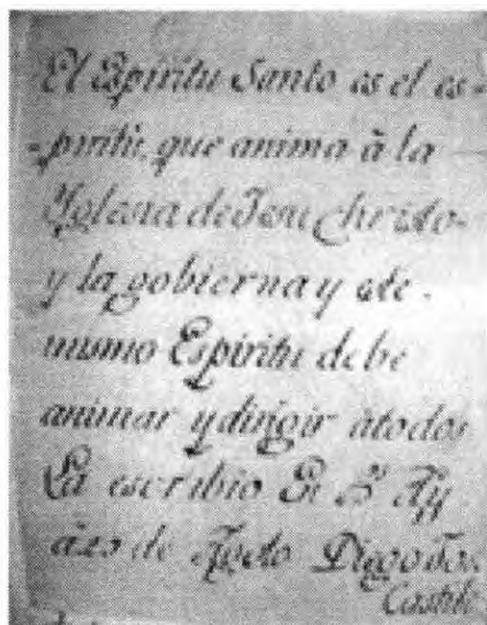 El Espiritu Santo es el es-
-piritu, que anima à la
Yglesia de Jesu Christo-
y la gobierna y este.
mismo Espiritu debe
animar y dirigir àtodos
La escribio
de Agosto Diego
Castillo